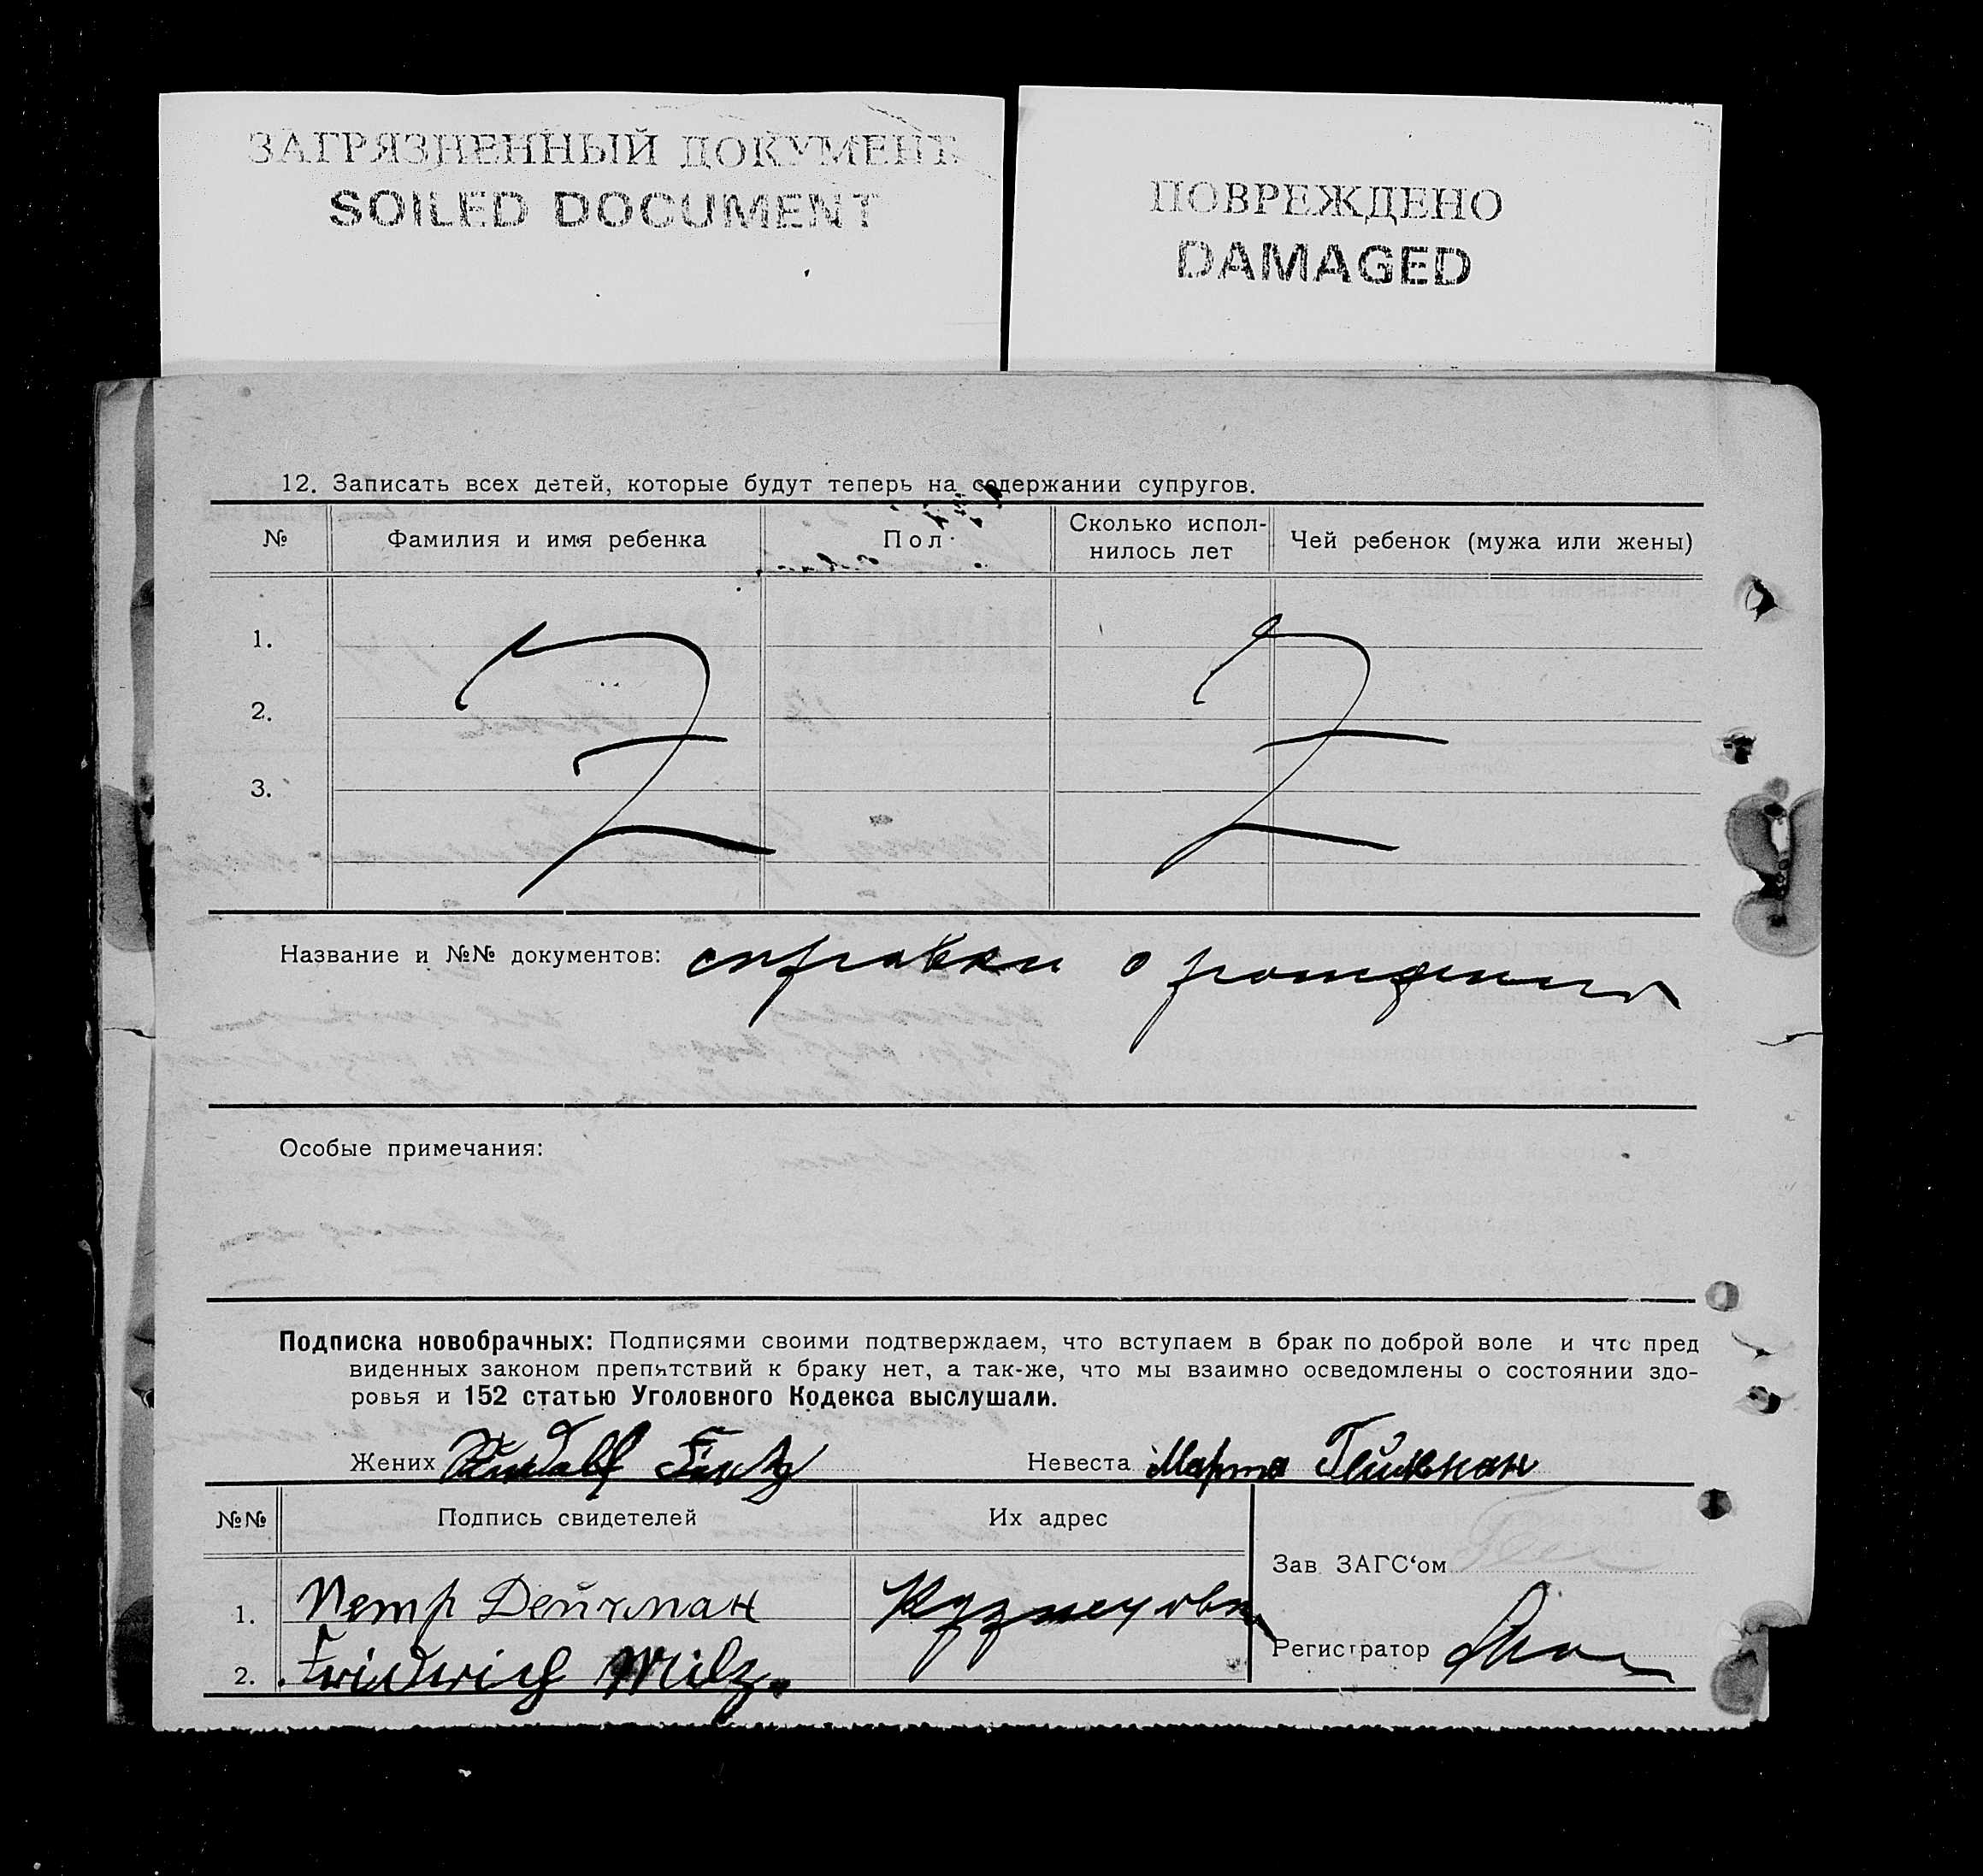 ЗАГРЯЗНЕННЫЙ ДОКУМЕНТ
SOILED DOCUMENT
ПОВРЕЖДЕНО
DAMAGED
12. Записать всех детей, которые будут теперь на содержании супругов.
№ Фамилия и имя ребенка Пол Сколько испол-нилось лет Чей ребенок (мужа или жены)
1.
2.
3.
Название и №№ документов: справки о рождении
Особые примечания:
Подписка новобрачных: Подписями своими подтверждаем, что вступаем в брак по доброй воле и что пред
виденных законом препятствий к браку нет, а так-же, что мы взаимно осведомлены о состоянии здо-
ровья и 152 статью Уголовного Кодекса выслушали.
Жених Rudolf Невеста Марта
№№ Подпись свидетелей Их адрес
Зав. ЗАГС'ом
1. Петр Дейчман Кузнецовка
Регистратор
2. Friedrich Milz.